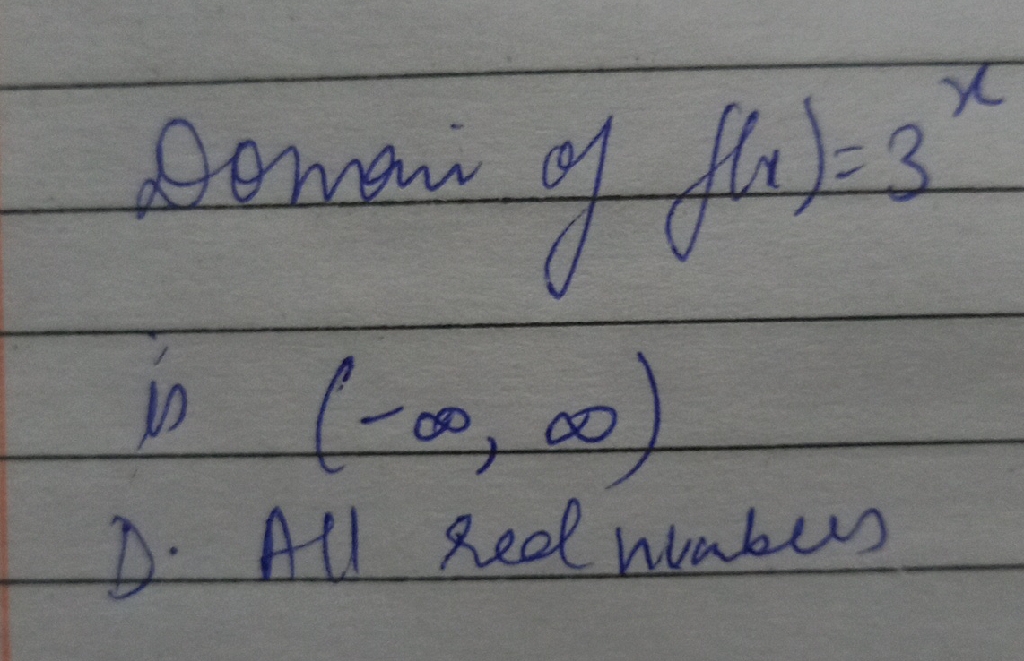 Domain of f(x) = 3^x
is (-∞, ∞)
D. All real numbers